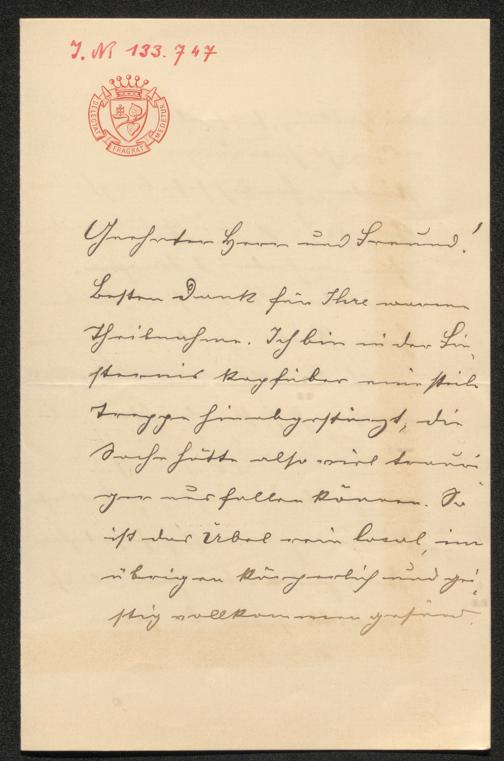 J. N. 133.747
DELECTAT FRAGRAT MEDETUR
Geehrter Herr und Freund!
Besten Dank für Ihre warme
Theilnahme. Ich bin in der Fin-
sternis kopfüber eine steile
Treppe hinabgestürzt, die
Sache hätte also viel trauri-
ger ausfallen können. So
ist das Übel rein local, im
übrigen körperlich und gei-
stig vollkommen gesund.